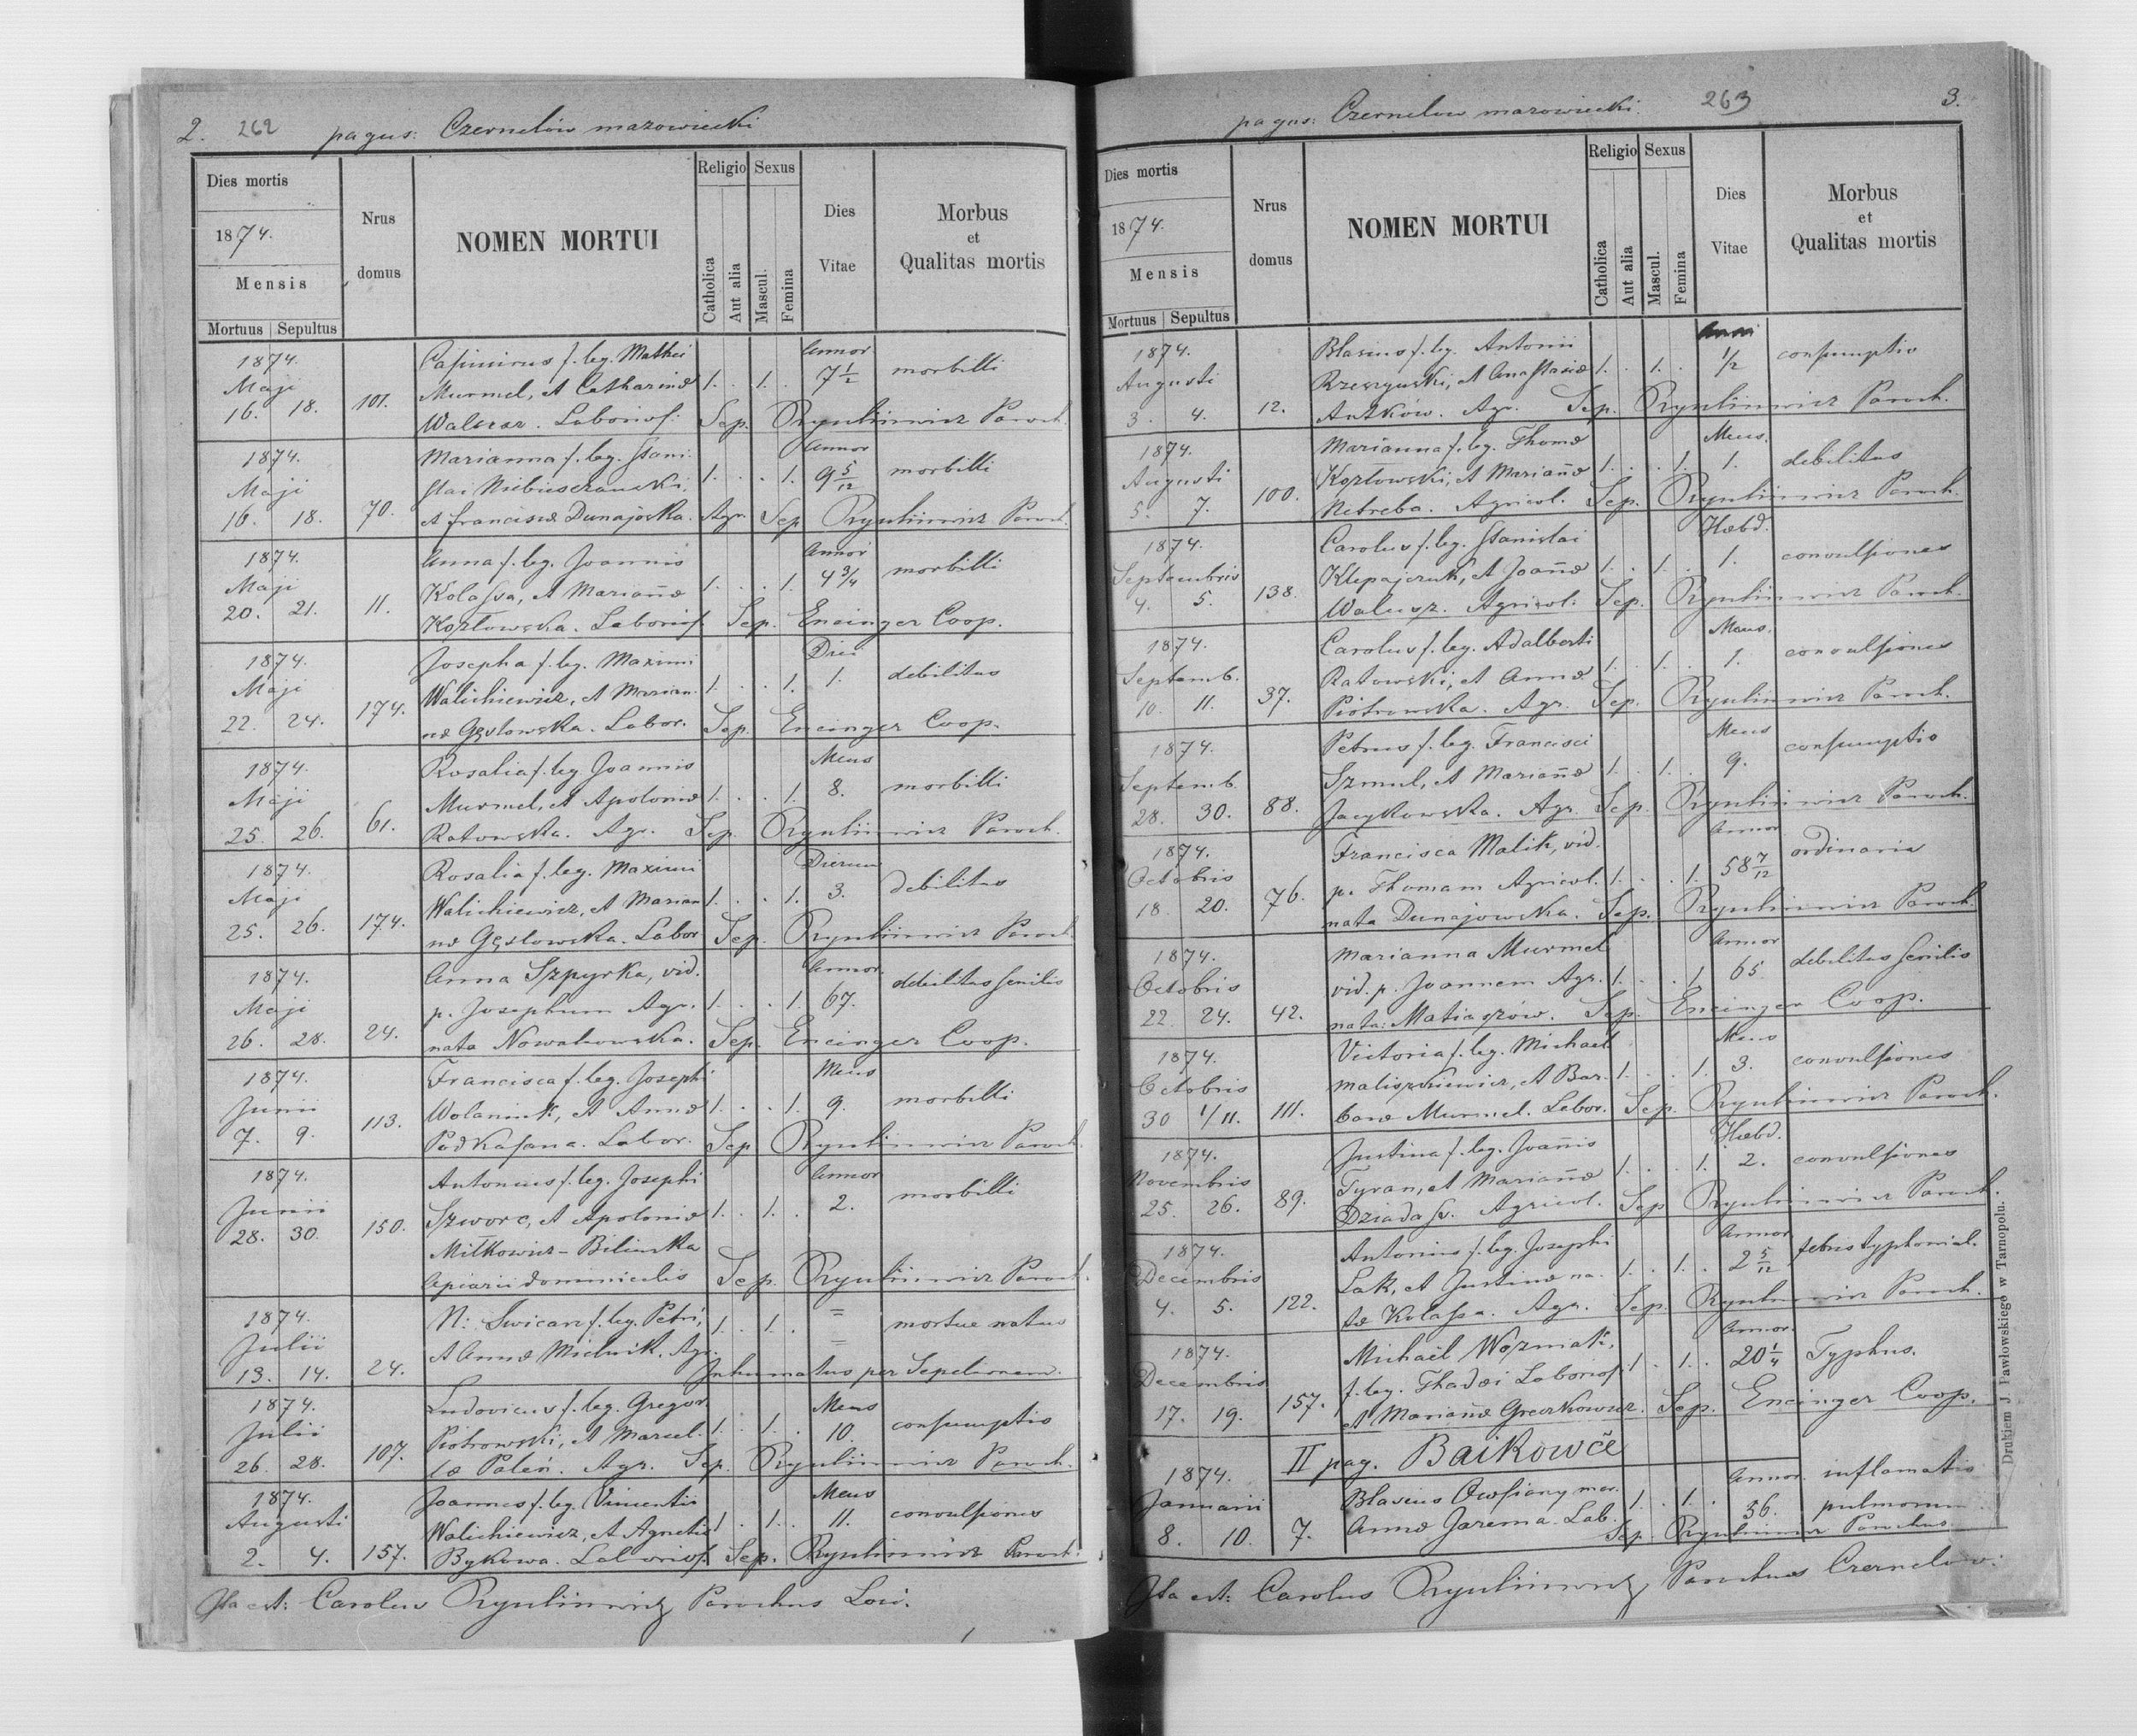 2. 262 pagus: Czernelów mazowiecki
Dies mortis
1874.
Mensis
Mortuus Sepultus
Nrus domus
NOMEN MORTUI
Religio
Catholica
Aut alia
Sexus
Mascul.
Femina
Dies Vitae
Morbus et Qualitas mortis
1874. Casimirus f. leg. Mathei Annor
Maji Murmel, et Catharinæ 1. . 1. . 7 1/2 morbilli
16. 18. 101. Laborios. Sep. Paroch.
1874. Marianna f. leg. Stani- Annor
Maji slai 1. . . 1. 9 5/12 morbilli
16. 18. 70. et Franciscæ Dunajoska. Agr. Sep Paroch.
1874. Anna f. leg. Joannis Annor
Maji Kolassa, et Mariañæ 1. . . 1. 4 3/4 morbilli
20. 21. 11. Kozłowska. Laborios. Sep. Encinger Coop.
1874. Josepha f. leg. Maximi Diei
Maji Walichiewicz, et Marian- 1. . . 1. 1. debilitas
22. 24. 174. næ Gęslowska. Labor. Sep. Encinger Coop.
1874. Rosalia f. leg. Joannis Mens
Maji Murmel, et Apoloniæ 1. . . 1. 8. morbilli
25. 26. 61. Ratowska. Agr. Sep. Paroch.
1874. Rosalia f. leg. Maximi Dierum
Maji Walichiewicz, et Marian 1. . . 1. 3. debilitas
25. 26. 174. næ Gęslowska. Labor Sep. Paroch.
1874. Anna Szpyrka, vid. Annor.
Maji p. Josephum Agr. 1. . . 1. 67. debilitas senilis
26. 28. 24. nata Nowakowska. Sep. Encinger Coop.
1874. Francisca f. leg. Josephi Mens
Junii Wolaniuk, et Annæ 1. . . 1. 9. morbilli
7. 9. 113. Podkasana. Labor. Sep Paroch.
1874. Antonius f. leg. Josephi Annor
Junii Szworc, et Apoloniæ 1. . 1. . 2. morbilli
28. 30. 150. Miłkowicz-Bilinska
Apiarii dominicalis Sep. Paroch.
1874. N: f. leg. Petri, =
Julii et Annæ Mielnik. Agr. 1. . 1. . = mortue natus
13. 14. 24. Inhumatus per
1874. Ludovicus f. leg. Gregor Mens
Julii Piotrowski, et Marcel- 1. . 1. . 10. consumptio
26. 28. 107. læ Paleń. Agr. Sep. Paroch.
1874. Joannes f. leg. Vincentii Mens
Augusti Walichiewicz, et Agnetis 1. . 1. . 11. convulsiones
2. 4. 157. Bykowa. Laborios. Sep. Paroch.
Ita est: Carolus Parochus Loci.
1
pagus: Czernelow mazowiecki. 263 3.
Dies mortis
1874.
Mensis
Mortuus Sepultus
Nrus domus
NOMEN MORTUI
Religio
Catholica
Aut alia
Sexus
Mascul.
Femina
Dies Vitae
Morbus et Qualitas mortis
1874. Blasius f. leg. Antonii
Augusti et Anastasiæ 1. . 1. . 1/2 consumptio
3. 4. 12. Antków. Agr. Sep. Paroch.
1874. Marianna f. leg. Thomæ Mens.
Augusti Kozłowski, et Mariañæ 1. . . 1. 1. debilitas
5. 7. 100. Netreba. Agricol. Sep. Paroch.
1874. Carolus f. leg. Stanislai Hebd.
Septembris Klepajczuk, et Joañæ 1. . 1. . 1. convulsiones
4. 5. 138. Walusz. Agricol. Sep. Paroch.
1874. Carolus f. leg. Adalberti Mens.
Septemb. Ratowski, et Annæ 1. . 1. . 1. convulsiones
10. 11. 37. Piotrowska. Agr. Sep. Paroch.
1874. Petrus f. leg. Francisci Mens
Septemb. Szmul, et Mariañæ 1. . 1. . 9. consumptio
28. 30. 88. Jacykowska. Agr. Sep. Paroch.
1874. Francisca Malik, vid. Annor
Octobris p. Thomam Agricol. 1. . . 1. 58 7/12 ordinaria
18. 20. 76. nata Dunajowska. Sep. Paroch.
1874. Marianna Murmel Annor
Octobris vid. p. Joannem Agr. 1. . . 1 65. debilitas senilis
22. 24. 42. nata: Matiaszów. Sep. Encinger Coop.
1874. Victoria f. leg. Michael Mens
Octobris Maliszkiewicz, et Bar- 1. . . 1. 3. convulsiones
30 1/11. 111. baræ Murmel. Labor. Sep. Paroch.
1874. Justina f. leg. Joañis Hebd.
Novembris Tyran, et Mariañæ 1. . . 1. 2. convulsiones
25. 26. 89. Agricol. Sep Paroch.
1874. Antonius f. leg. Josephi Annor
Decembris Lak, et Justinæ na- 1. . 1. . 2 5/12 febris
4. 5. 122. tæ Kolassa. Agr. Sep. Paroch.
1874. Michaël Woźniak, Annor.
Decembris f. leg. Thadæi Laborios. 1. . 1. . 20 1/4 Typhus.
17. 19. 157. et Mariañæ Sep. Encinger Coop.
II pag. Baikowce
1874. Blasius mar. Annor. inflamatio
Januarii Annæ Jarema. Lab. 1. . 1. . 56. pulmonum
8. 10. 7. Sep Parochus
Ita est: Carolus Parochus Czernelow:
Drukiem J. Pawłowskiego w Tarnopolu.